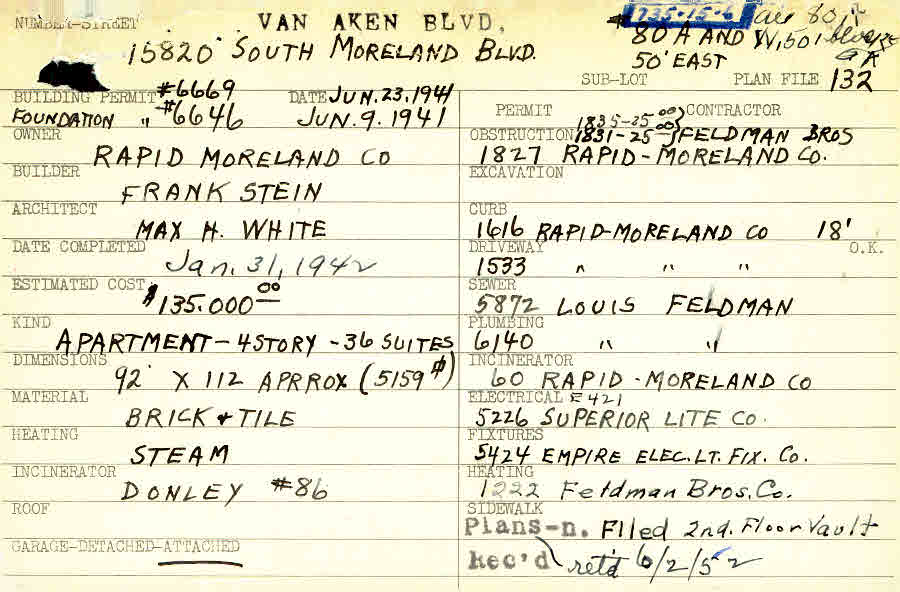 NUMBER-STREET VAN AKEN BLVD.
15820 SOUTH MORELAND BLVD.
735-15-6
80 A AND W,50'
50' EAST
SUB-LOT PLAN FILE 132
BUILDING PERMIT #6669 DATE JUN.23.1941
FOUNDATION " #6646 JUN.9.1941
OWNER
RAPID MORELAND CO
BUILDER
FRANK STEIN
ARCHITECT
MAX H. WHITE
DATE COMPLETED
Jan. 31, 1942
ESTIMATED COST
$135.000 00
KIND
APARTMENT - 4 STORY - 36 SUITES
DIMENSIONS
92' X 112 APRROX (5159 ⏀)
MATERIAL
BRICK + TILE
HEATING
STEAM
INCINERATOR
DONLEY #86
ROOF
GARAGE-DETACHED-ATTACHED
PERMIT CONTRACTOR
1835-25 00
OBSTRUCTION 1831-25 00 } FELDMAN BROS
1827 RAPID-MORELAND CO.
EXCAVATION
CURB
1616 RAPID-MORELAND CO 18'
DRIVEWAY O.K.
1533 " " "
SEWER
5872 LOUIS FELDMAN
PLUMBING
6140 " "
INCINERATOR
60 RAPID-MORELAND CO
ELECTRICAL E421
5226 SUPERIOR LITE CO.
FIXTURES
5424 EMPIRE ELEC.LT. FIX. CO.
HEATING
1222 Feldman Bros. Co.
SIDEWALK
Plans-n. Filed 2nd. Floor Vault
Rec'd ret'd 6/2/52